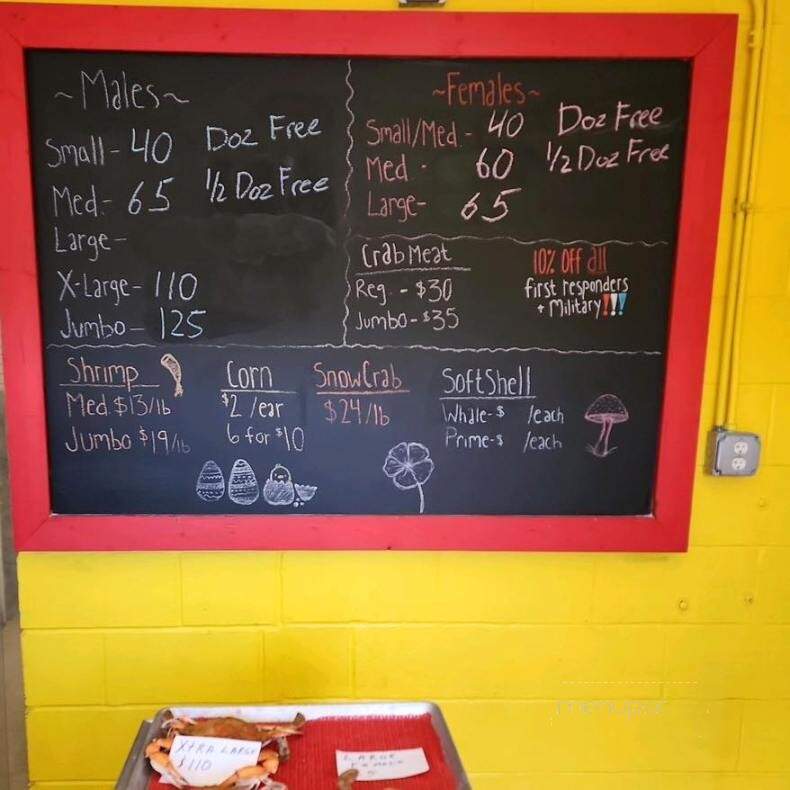 ~Males~
Small - 40 Doz Free
Med. - 65 1/2 Doz Free
Large -
X-Large - 110
Jumbo - 125
~Females~
Small/Med. - 40 Doz Free
Med - 60 1/2 Doz Free
Large - 65
Crab Meat
Reg. - $30
Jumbo - $35
10% Off all
first responders
+ Military!!!
Shrimp
Med $13/lb
Jumbo $19/lb
Corn
$2 /ear
6 for $10
Snow Crab
$24/lb
Soft Shell
Whale - $ /each
Prime - $ /each
menupix
XTRA LARGE
$110
LARGE